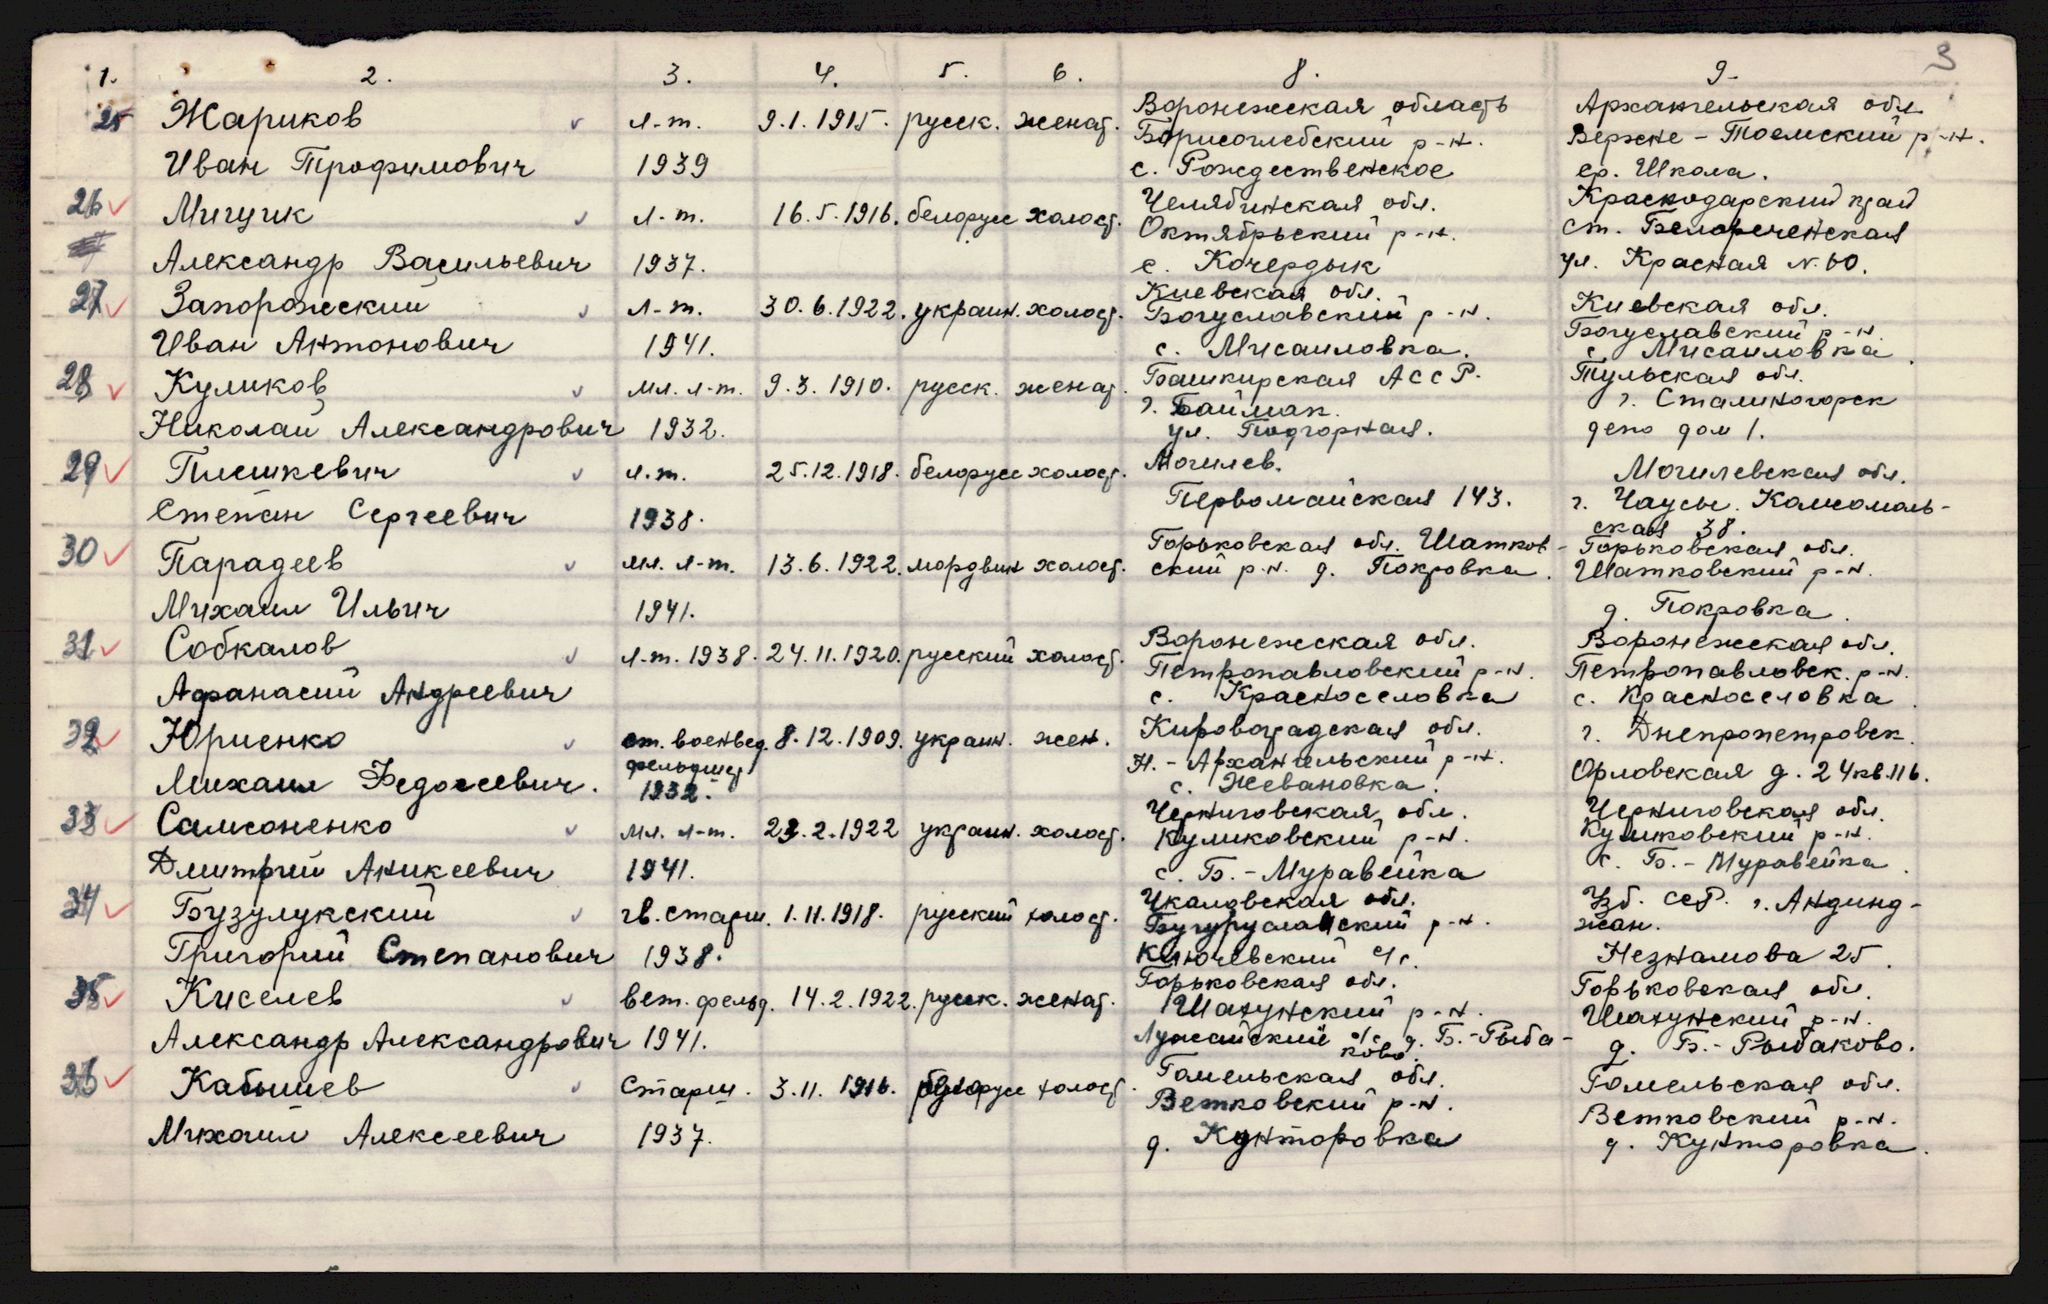 3
1. 2. 3. 4. 5. 6. 8. 9.
25 Жариков л-т. 9.1.1915. русск. женат. Воронежская область Архангельская обл.
Борисоглебский р-н. Верхне-Тоемский р-н.
Иван Трофимович 1939 с. Рождественское ср. Школа.
26 Мицук л-т. 16.5.1916. белорусс холост. Челябинская обл. Краснодарский край
Октябрьский р-н. ст. Белореченская
Александр Васильевич 1937. с. Кочердык ул. Красная N. 60.
27 Запорожский л-т. 30.6.1922. украин. холост. Киевская обл. Киевская обл.
Богуславский р-н. Богуславский р-н.
Иван Антонович 1941. с. Мисаиловка. с. Мисаиловка.
28 Куликов мл. л-т. 9.3.1910. русск. женат. Башкирская АССР. Тульская обл.
г. Баймак. г. Сталиногорск
Николай Александрович 1932. ул. Подгорная. депо дом 1.
29 Плешкевич л-т. 25.12.1918. белорусс холост. Могилев. Могилевская обл.
Первомайская 143. г. Чаусы. Комсомоль-
Степан Сергеевич 1938. ская 38.
30 Парадеев мл. л-т. 13.6.1922. мордвин холост. Горьковская обл. Шатков- Горьковская обл.
ский р-н. д. Покровка. Шатковский р-н.
Михаил Ильич 1941. д. Покровка.
31 Собкалов л-т. 1938. 24.11.1920. русский холост. Воронежская обл. Воронежская обл.
Петропавловский р-н. Петропавловск. р-н.
Афанасий Андреевич с. Красноселовка с. Красноселовка.
32 Юриенко ст. военвед. 8.12.1909. украин. жен. Кировоградская обл. г. Днепропетровск.
фельдшер Н.-Архангельский р-н.
Михаил Федосеевич. 1932. с. Жевановка. Орловская д. 24 кв. 116.
33 Самсоненко мл. л-т. 23.2.1922 украин. холост. Черниговская обл. Черниговская обл.
Куликовский р-н. Куликовский р-н.
Дмитрий Аникеевич 1941. с. Б.-Муравейка с. Б.-Муравейка.
34 Бузулукский гв. старш. 1.11.1918. русский холост. Чкаловская обл. Узб. ССР. г. Андинд-
Бугурусланский р-н. жан.
Григорий Степанович 1938. Ключевский с/с. Незнамова 25.
35 Киселев вет. фельд. 14.2.1922. русск. женат. Горьковская обл. Горьковская обл.
Шахунский р-н. Шахунский р-н.
Александр Александрович 1941. Лужайский с/с д. Б.-Рыба- д. Б.-Рыбаково.
ково.
36 Кабышев Старш. 3.11.1916. белорусс холост. Гомельская обл. Гомельская обл.
Ветковский р-н. Ветковский р-н.
Михаил Алексеевич 1937. д. Кунторовка д. Кунторовка.